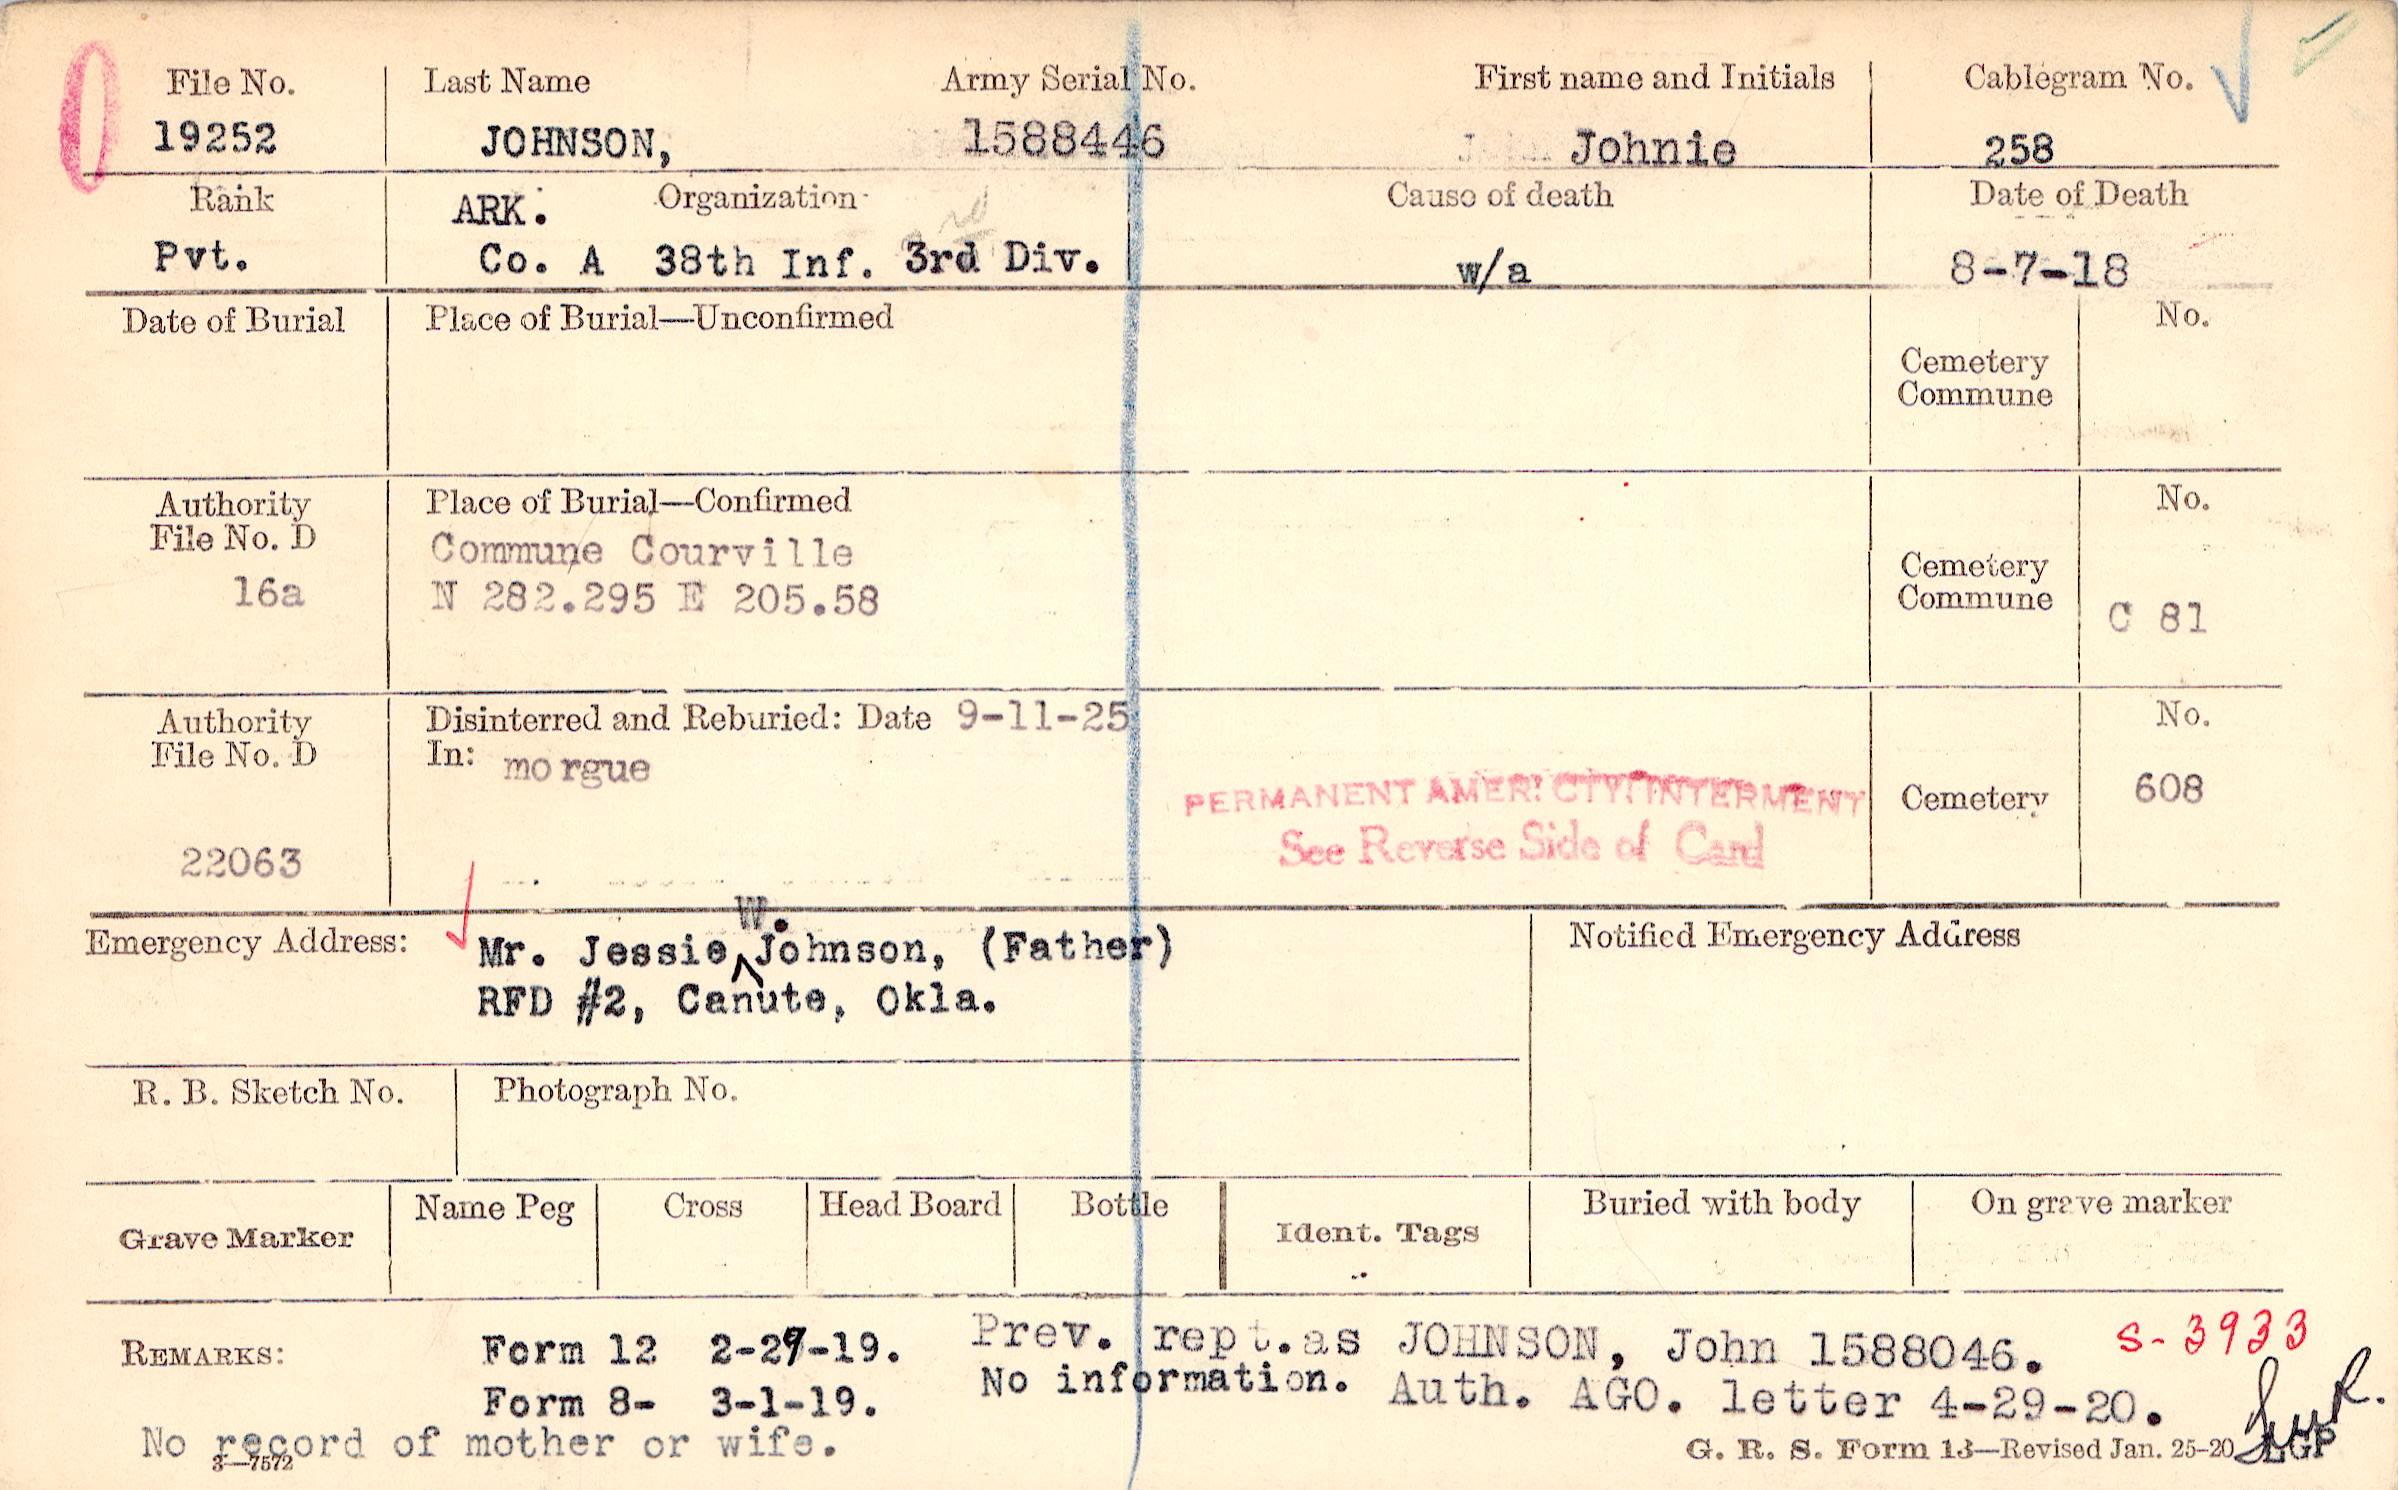 File No. Last Name Army Serial No. First name and Initials Cablegram No.
19252 JOHNSON, 1588446 Johnie 258
Rank ARK. Organization Cause of death Date of Death
Pvt. Co. A 38th Inf. 3rd Div. w/a 8-7-18
Date of Burial Place of Burial—Unconfirmed No.
Cemetery
Commune
Authority Place of Burial—Confirmed No.
File No. D Commune Courville Cemetery
16a N 282.295 E 205.58 Commune C 81
Authority Disinterred and Reburied: Date 9-11-25 No.
File No. D In: morgue
PERMANENT AMER. CTY. INTERMENT Cemetery 608
See Reverse Side of Card
22063
W.
Emergency Address: Mr. Jessie Johnson, (Father) Notified Emergency Address
RFD #2, Canute, Okla.
R. B. Sketch No. Photograph No.
Grave Marker Name Peg Cross Head Board Bottle Ident. Tags Buried with body On grave marker
REMARKS: Form 12 2-27-19. Prev. rept. as JOHNSON, John 1588046. S-3933
Form 8- 3-1-19. No information. Auth. AGO. letter 4-29-20.
No record of mother or wife.
3—7572 G. R. S. Form 13—Revised Jan. 25-20